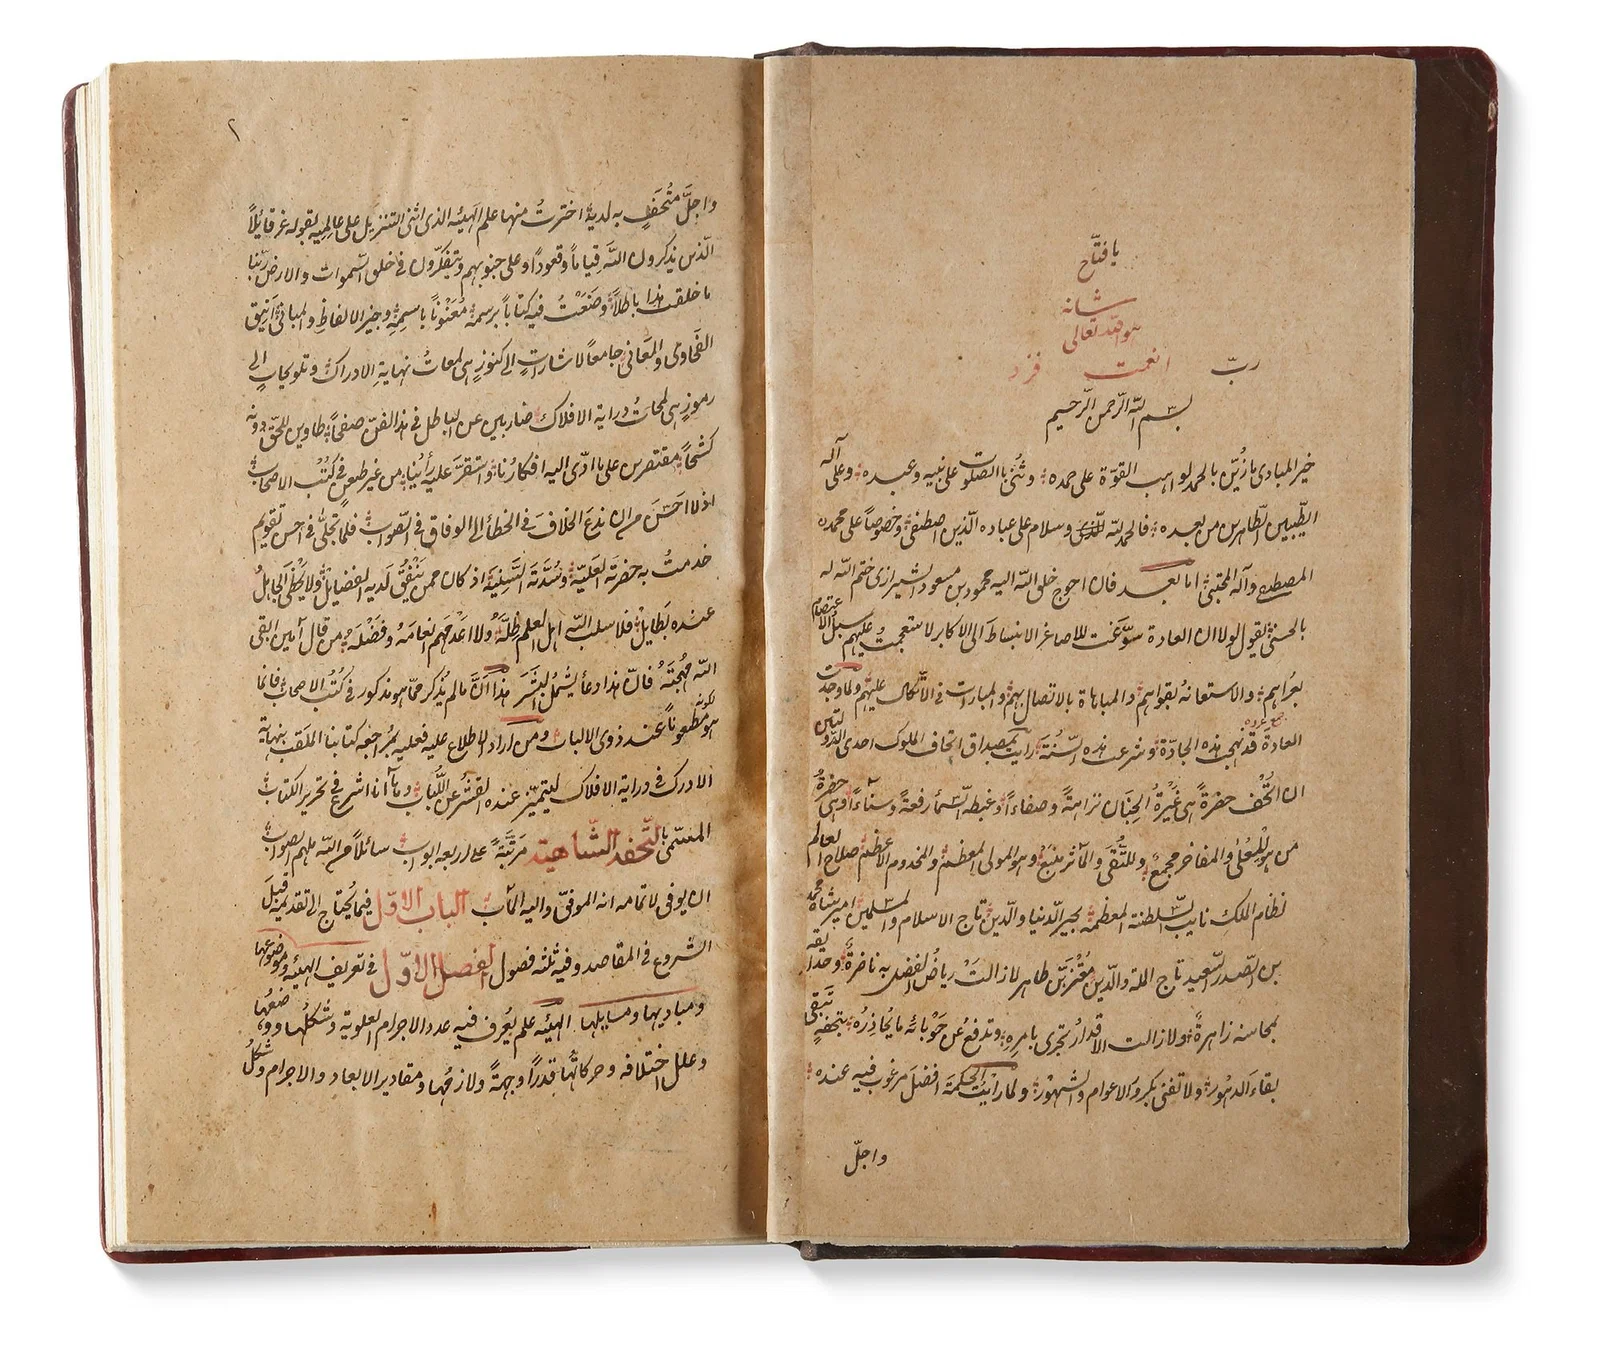 يا فتّاح
شانه
هو الله تعالى
ربّ انعمت فزد
بسم الله الرحمن الرحيم
خير المبادى ما زُيّن بالحمد لواهب القوّة على حمده وثُنّى بالصلوت على نبيه وعبده وعلى آله
الطيبين الطاهرين من بعده فالحمد لله وسلام على عباده الذين اصطفى وخصوصاً على محمده
المصطفى وآله المجتبى اما بعد فان احوج خلق الله اليه محمود بن مسعود الشيرازى ختم الله له
بالحسنى يقول لولا ان العادة سوّغت للاصاغر الانبساط الى الاكابر لاستعجمت عليهم سبل الاعتصام
بعراهم والاستعانة بقواهم والمباهاة بالاتصال بهم والمبارات فى الاتكال عليهم ولما وجدت
العادة قد نهجت هذه الجادّة وشرعت هذه السُّنة رايت بمصداق اتحاف الملوك احدى
ان اُتحف حضرة هى غيرة الجنان نزاهةً وصفاءً وغبطه السماء رفعةً وسناءً وهى حضرةُ
من هو للمعالى والمفاخر مجمع وللتُّقى والمآثر منبع وهو المولى المعظم والمخدوم الاعظم صلاح العالم
نظام الملك نايب السلطنة المعظمه مجير الدنيا والدين تاج الاسلام والمسلمين اميرشاه محمد
بن الصّدر السعيد تاج الملة والدين معتز بن طاهر لا زالت رياض الفضل به ناضرةً وحدائقه
بمحاسنه زاهرةً ولا زالت الاقدار تجرى بامره وتدفع عن حوبائه ما يُحاذره بتحفةٍ تبقى
بقاء الدهور ولا تفنى بكرور الاعوام والشهور ولما رايت الحكمة افضل مرغوب فيه عنده
واجلّ
٢
واجلّ مُتحَفٍ به لديه اخترتُ منها علم الهيئه الذى اثنى التنزيل على عالميه بقوله عز قائلاً
الذين يذكرون الله قياماً وقعوداً وعلى جنوبهم ويتفكّرون فى خلق السموات والارض ربّنا
ما خلقت هذا باطلاً وصنعتُ فيه كتاباً برسمه مُعنوناً باسمه وجيز الالفاظ والمبانى انيق
الفحاوى والمعانى جامعاً لاشاراتٍ الى كنوزٍ هى لمعات نهاية الادراك وتلويحاتٍ الى
رموزٍ هى لمحات دراية الافلاك ضاربين عن الباطل فى هذا الفنّ صفحاً طاوين للحقّ دونه
كشحاً مقتصرين على ما ادّى اليه افكارُنا واستقرّ عليه رأيُنا من غير طعنٍ فى كتب الاصحاب
اذ لا احسن من ان ندع الخلاف فى الخطأ الى الوفاق فى الصواب فلما تجلّى فى احسن تقويم
خدمتُ به حضرته العليّة وسُدّته السنيّة اذ كان ممن يَنفُقُ لديه الفضايل ولا يَحظى الجاهلُ
عنده بطايل فلا سلب الله اهل العلم ظلّهُ ولا اعدمهم انعامهُ وفضلهُ من قال آمين ابقى
الله مُهجتهُ فانّ هذا دعاٌ يشمل البشر هذا انّ ما لم يُذكر ممّا هو مذكور فى كتب الاصحاب فانما
هو لكونه مطعوناً عند ذوى الالباب ومن اراد الاطلاع عليه فعليه بمراجعه كتابنا الملقب بنهاية
الادرك فى دراية الافلاك ليتميّز عنده القشر عن اللُّباب وها انا اشرع فى تحرير الكتاب
المسمّى بالتحفه الشّاهيّه مرتّبةً على اربعه ابواب سائلاً من الله ملهم الصواب
ان يوفى لاتمامه انه الموفق واليه المآب الباب الاوّل فيما يُحتاج الى تقديمه قبل
الشروع فى المقاصد وفيه ثلثه فصول الفصل الاوّل فى تعريف الهيئه وموضوعها
ومباديها ومسايلها الهيئه علم يُعرف فيه عدد الاجرام العلوية وشكلُها ووضعُها
وعلل اختلافه وحركاتُها قدراً وجهةً ولازمُها ومقادير الابعاد والاجرام وشكلُ